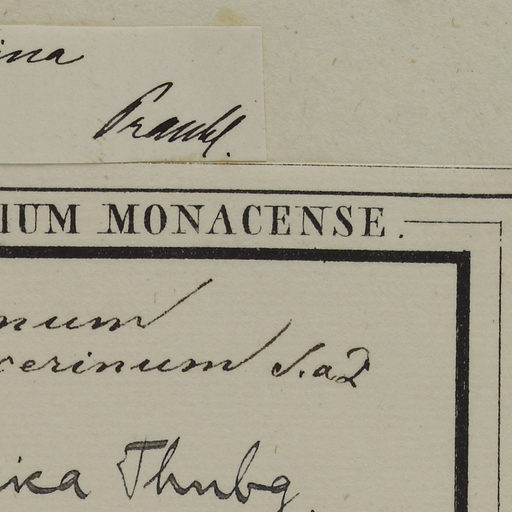 ina
Prantl.
IUM MONACENSE.
num
cerinum S.a2
ica Thubg.